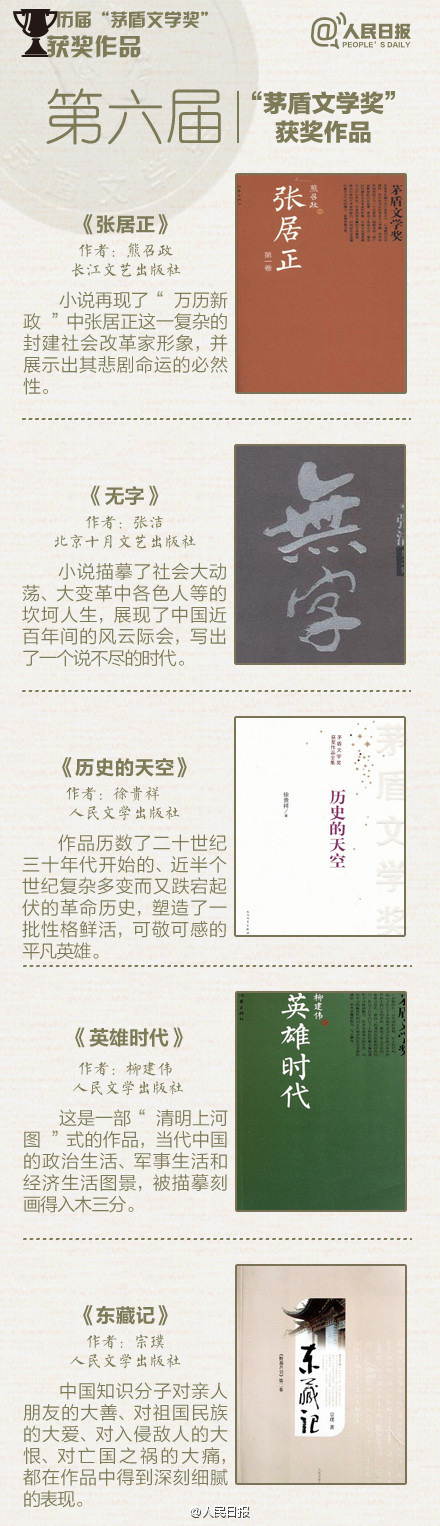 历届“茅盾文学奖”
获奖作品
@人民日报
PEOPLE'S DAILY
第六届
“茅盾文学奖”
获奖作品
《张居正》
作者：熊召政
长江文艺出版社
小说再现了“万历新
政”中张居正这一复杂的
封建社会改革家形象，并
展示出其悲剧命运的必然
性。
茅盾文学奖
熊召政
张居正
第一卷
《无字》
作者：张洁
北京十月文艺出版社
小说描摹了社会大动
荡、大变革中各色人等的
坎坷人生，展现了中国近
百年间的风云际会，写出
了一个说不尽的时代。
無字
张洁
《历史的天空》
作者：徐贵祥
人民文学出版社
作品历数了二十世纪
三十年代开始的、近半个
世纪复杂多变而又跌宕起
伏的革命历史，塑造了一
批性格鲜活，可敬可感的
平凡英雄。
茅盾文学奖
茅盾文学奖
获奖作品全集
历史的天空
徐贵祥 著
《英雄时代》
作者：柳建伟
人民文学出版社
这是一部“清明上河
图”式的作品，当代中国
的政治生活、军事生活和
经济生活图景，被描摹刻
画得入木三分。
茅盾文学奖
柳建伟
英雄时代
《东藏记》
作者：宗璞
人民文学出版社
中国知识分子对亲人
朋友的大善、对祖国民族
的大爱、对入侵敌人的大
恨、对亡国之祸的大痛，
都在作品中得到深刻细腻
的表现。
东藏记
宗璞 著
@人民日报